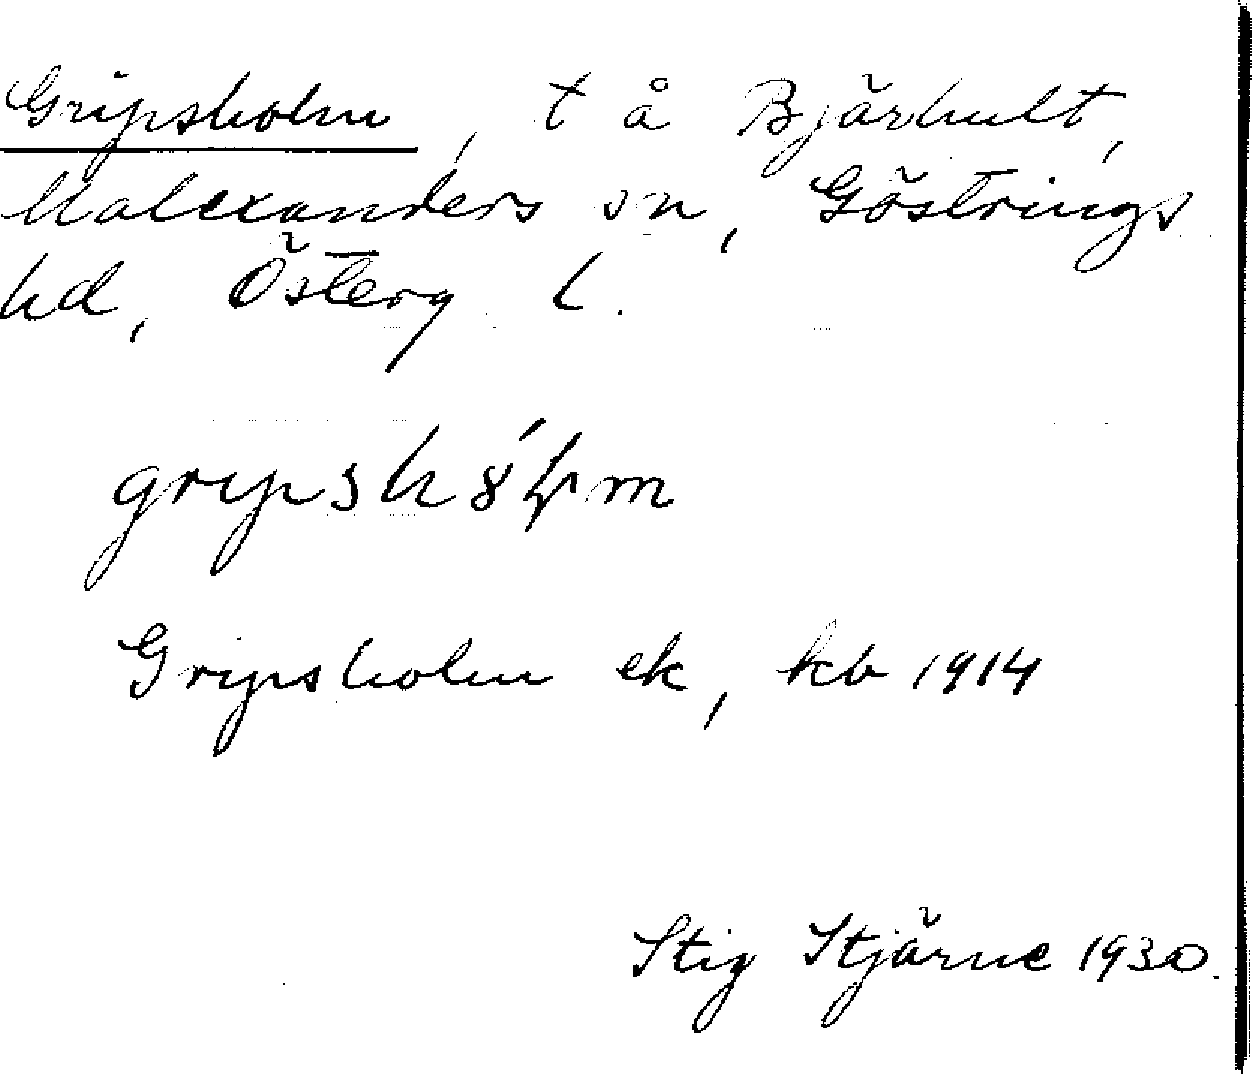 Gripsholm, t å Bjärhult,
Malexanders sn, Göstrings
hd, Österg l.
Gripsholm ek, kb 1914
Stig Stjärne 1930.